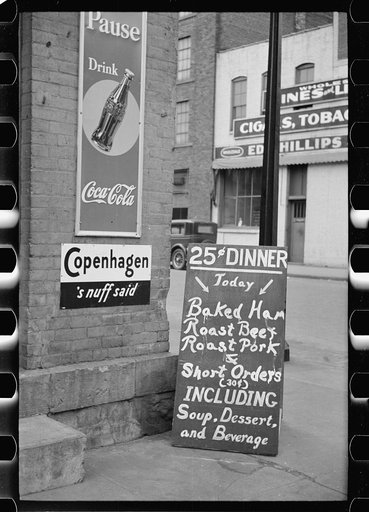 Pause
Drink
Coca-Cola
Copenhagen
's nuff said
WHOLE
INES & L
CIGARS, TOBAC
ED PHILLIPS
25¢ DINNER
Today
Baked Ham
Roast Beef
Roast Pork
&
Short Orders
(30¢)
INCLUDING
Soup, Dessert,
and Beverage